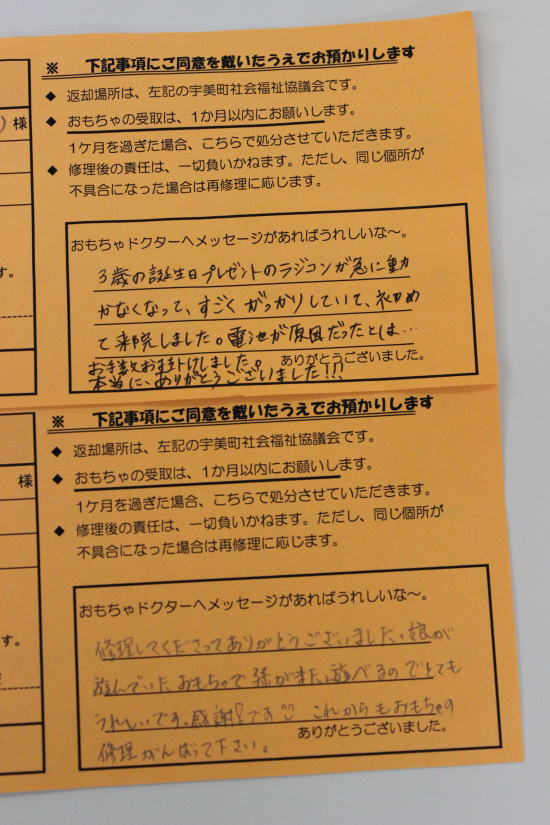 ※ 下記事項にご同意を戴いたうえでお預かりします
◆ 返却場所は、左記の宇美町社会福祉協議会です。
◆ おもちゃの受取は、1か月以内にお願いします。
1ケ月を過ぎた場合、こちらで処分させていただきます。
◆ 修理後の責任は、一切負いかねます。ただし、同じ個所が
不具合になった場合は再修理に応じます。
様
す。
おもちゃドクターへメッセージがあればうれしいな～。
3歳の誕生日プレゼントのラジコンが急に動
かなくなって、すごくがっかりしていて、初め
て来院しました。電池が原因だったとは…
お手数お掛けしました。 ありがとうございました。
本当に、ありがとうございました!!!
※ 下記事項にご同意を戴いたうえでお預かりします
◆ 返却場所は、左記の宇美町社会福祉協議会です。
◆ おもちゃの受取は、1か月以内にお願いします。
1ケ月を過ぎた場合、こちらで処分させていただきます。
◆ 修理後の責任は、一切負いかねます。ただし、同じ個所が
不具合になった場合は再修理に応じます。
様
す。
おもちゃドクターへメッセージがあればうれしいな～。
修理してくださってありがとうございました。娘が
遊んでいたおもちゃで孫がまた遊べるのでとても
うれしいです。感謝!です♡ これからもおもちゃの
ありがとうございました。
修理がんばって下さい。